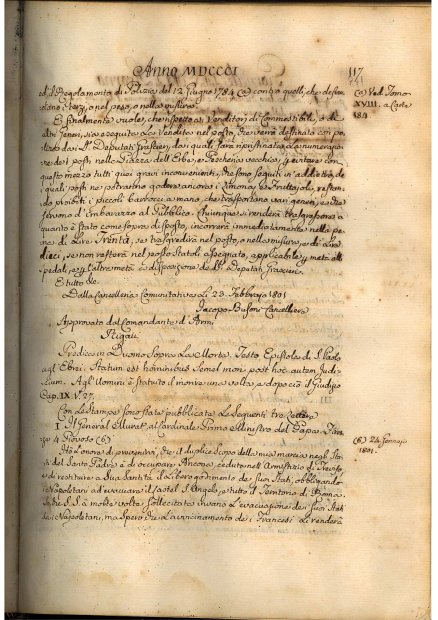 Anno MDCCCI
117
ed il Regolamento di Polizia del 12 Giugno 1784 (a) contro quelli, che
o nel peso, o nella misura.
E finalmente vuole, che rispetto ai Venditori di Commestibili, o di
altri generi, sia eseguita la Vendita nel posto, che verrà destinato con
dai Sig. Deputati Grascieri, dai quali sarà ripristinata la numerazione
dei posti nella Piazza dell'Erbe, e Pescheria vecchia, per evitare con
questo mezzo tutti quei gran inconvenienti, che sono seguiti in addietro, de
i quali posti ne potranno godere ancora i e Fruttajoli, restando
proibiti i piccoli barrocci a mano, che trasportano vari generi, e che
servono d'imbarazzo al Pubblico. Chiunque si renderà trasgressore a
quanto è stato come sopra disposto, incorrerà immediatamente nella pena
di Lire Trenta, se trasgredirà nel posto, o nella misura, e di Lire
dieci, se non resterà nel posto statoli assegnato, applicabile metà allo
Spedale, e l'altra metà a disposizione de' Sig. Deputati Grascieri.
E tutto &c.
Dalla Cancelleria Comunitativa Li 23. Febbrajo 1801
Jacopo Bufoni Cancelliere
Approvato dal Comandante d'Armi
Rigau
Predica in Duomo Sopra La Morte. Testo Epistola di S. Paolo
agl'Ebrei. Statum est hominibus semel mori post hoc autem Judi-
cium. Agl'Uomini è statuito il morire una volta, e dopo ciò il Giudizio
Cap. IX V. 27.
Con le stampe sono state pubblicate le seguenti tre Lettere
I. Il General Murat al Cardinale Primo Ministro del Papa.
li Glovoso (b)
Ho l'onore di prevenirvi, che il duplice scopo della mia marcia negli Stati
del Santo Padre è di occupare Ancona, ceduto nell'Armistizio di Treviso,
e di restituire a Sua Santità il libero godimento de' suoi Stati, obbligando i
Napoletani ad evacuare il Castel S. Angelo, e tutto il Territorio di Roma.
S. S. à molte volte sollecitata invano l'evacuazione de' suoi Stati
dai Napoletani, ma spero che l'avvicinamento de' i Francesi la renderà
(a) Ved. Tomo
XVIII. a Carte
184
(b) 24 Gennajo
1801.